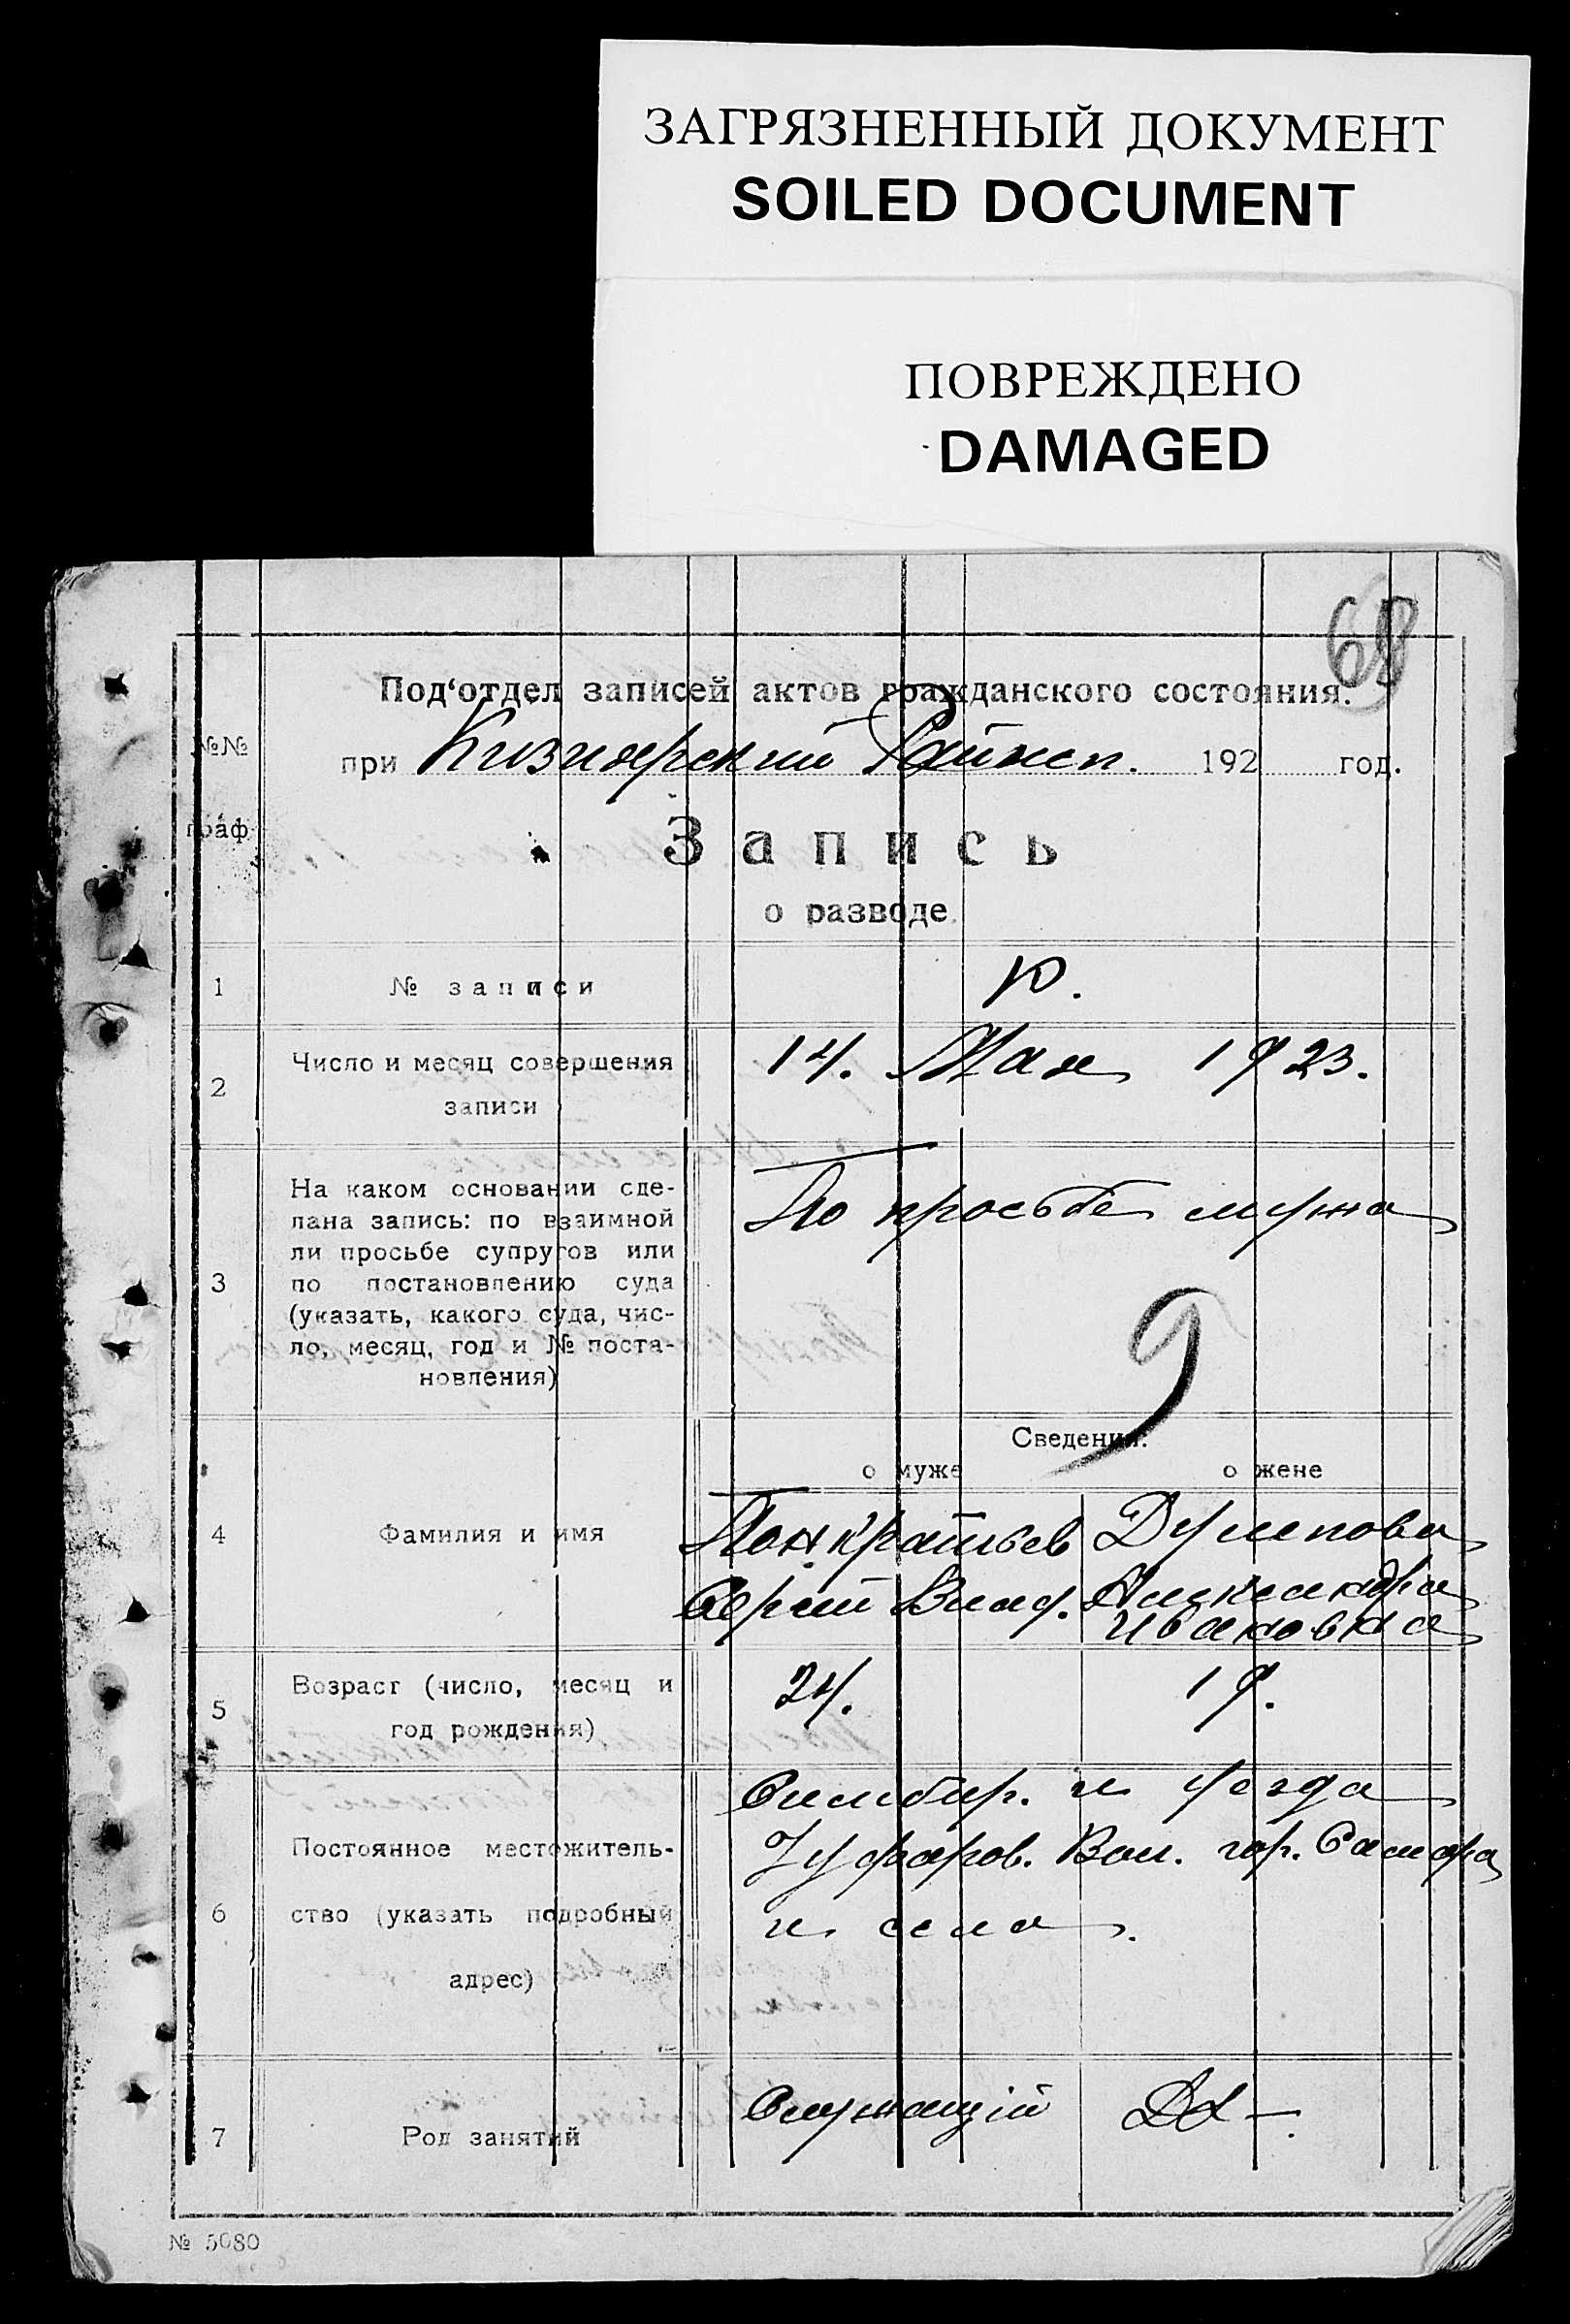 ЗАГРЯЗНЕННЫЙ ДОКУМЕНТ
SOILED DOCUMENT
ПОВРЕЖДЕНО
DAMAGED
68
Под‘отдел записей актов гражданского состояния.
№№
граф
при 192 год.
Запись
о разводе.
1 № записи 10.
2 Число и месяц совершения
записи
14. Мая 1923.
3 На каком основании сде-
лана запись: по взаимной
ли просьбе супругов или
по постановлению суда
(указать, какого суда, чис-
ло, месяц, год и № поста-
новления)
По просьбе мужа
9
Сведения:
о муже о жене
4 Фамилия и имя
Понкратьев
Сергий Влад. Александра
Ивановна
5 Возраст (число, месяц и
год рождения)
24. 19.
6 Постоянное местожитель-
ство (указать подробный
адрес)
Симбир. и уезда
Вол. гор. Самара
и села.
7 Род занятий
Служащій
№ 5080